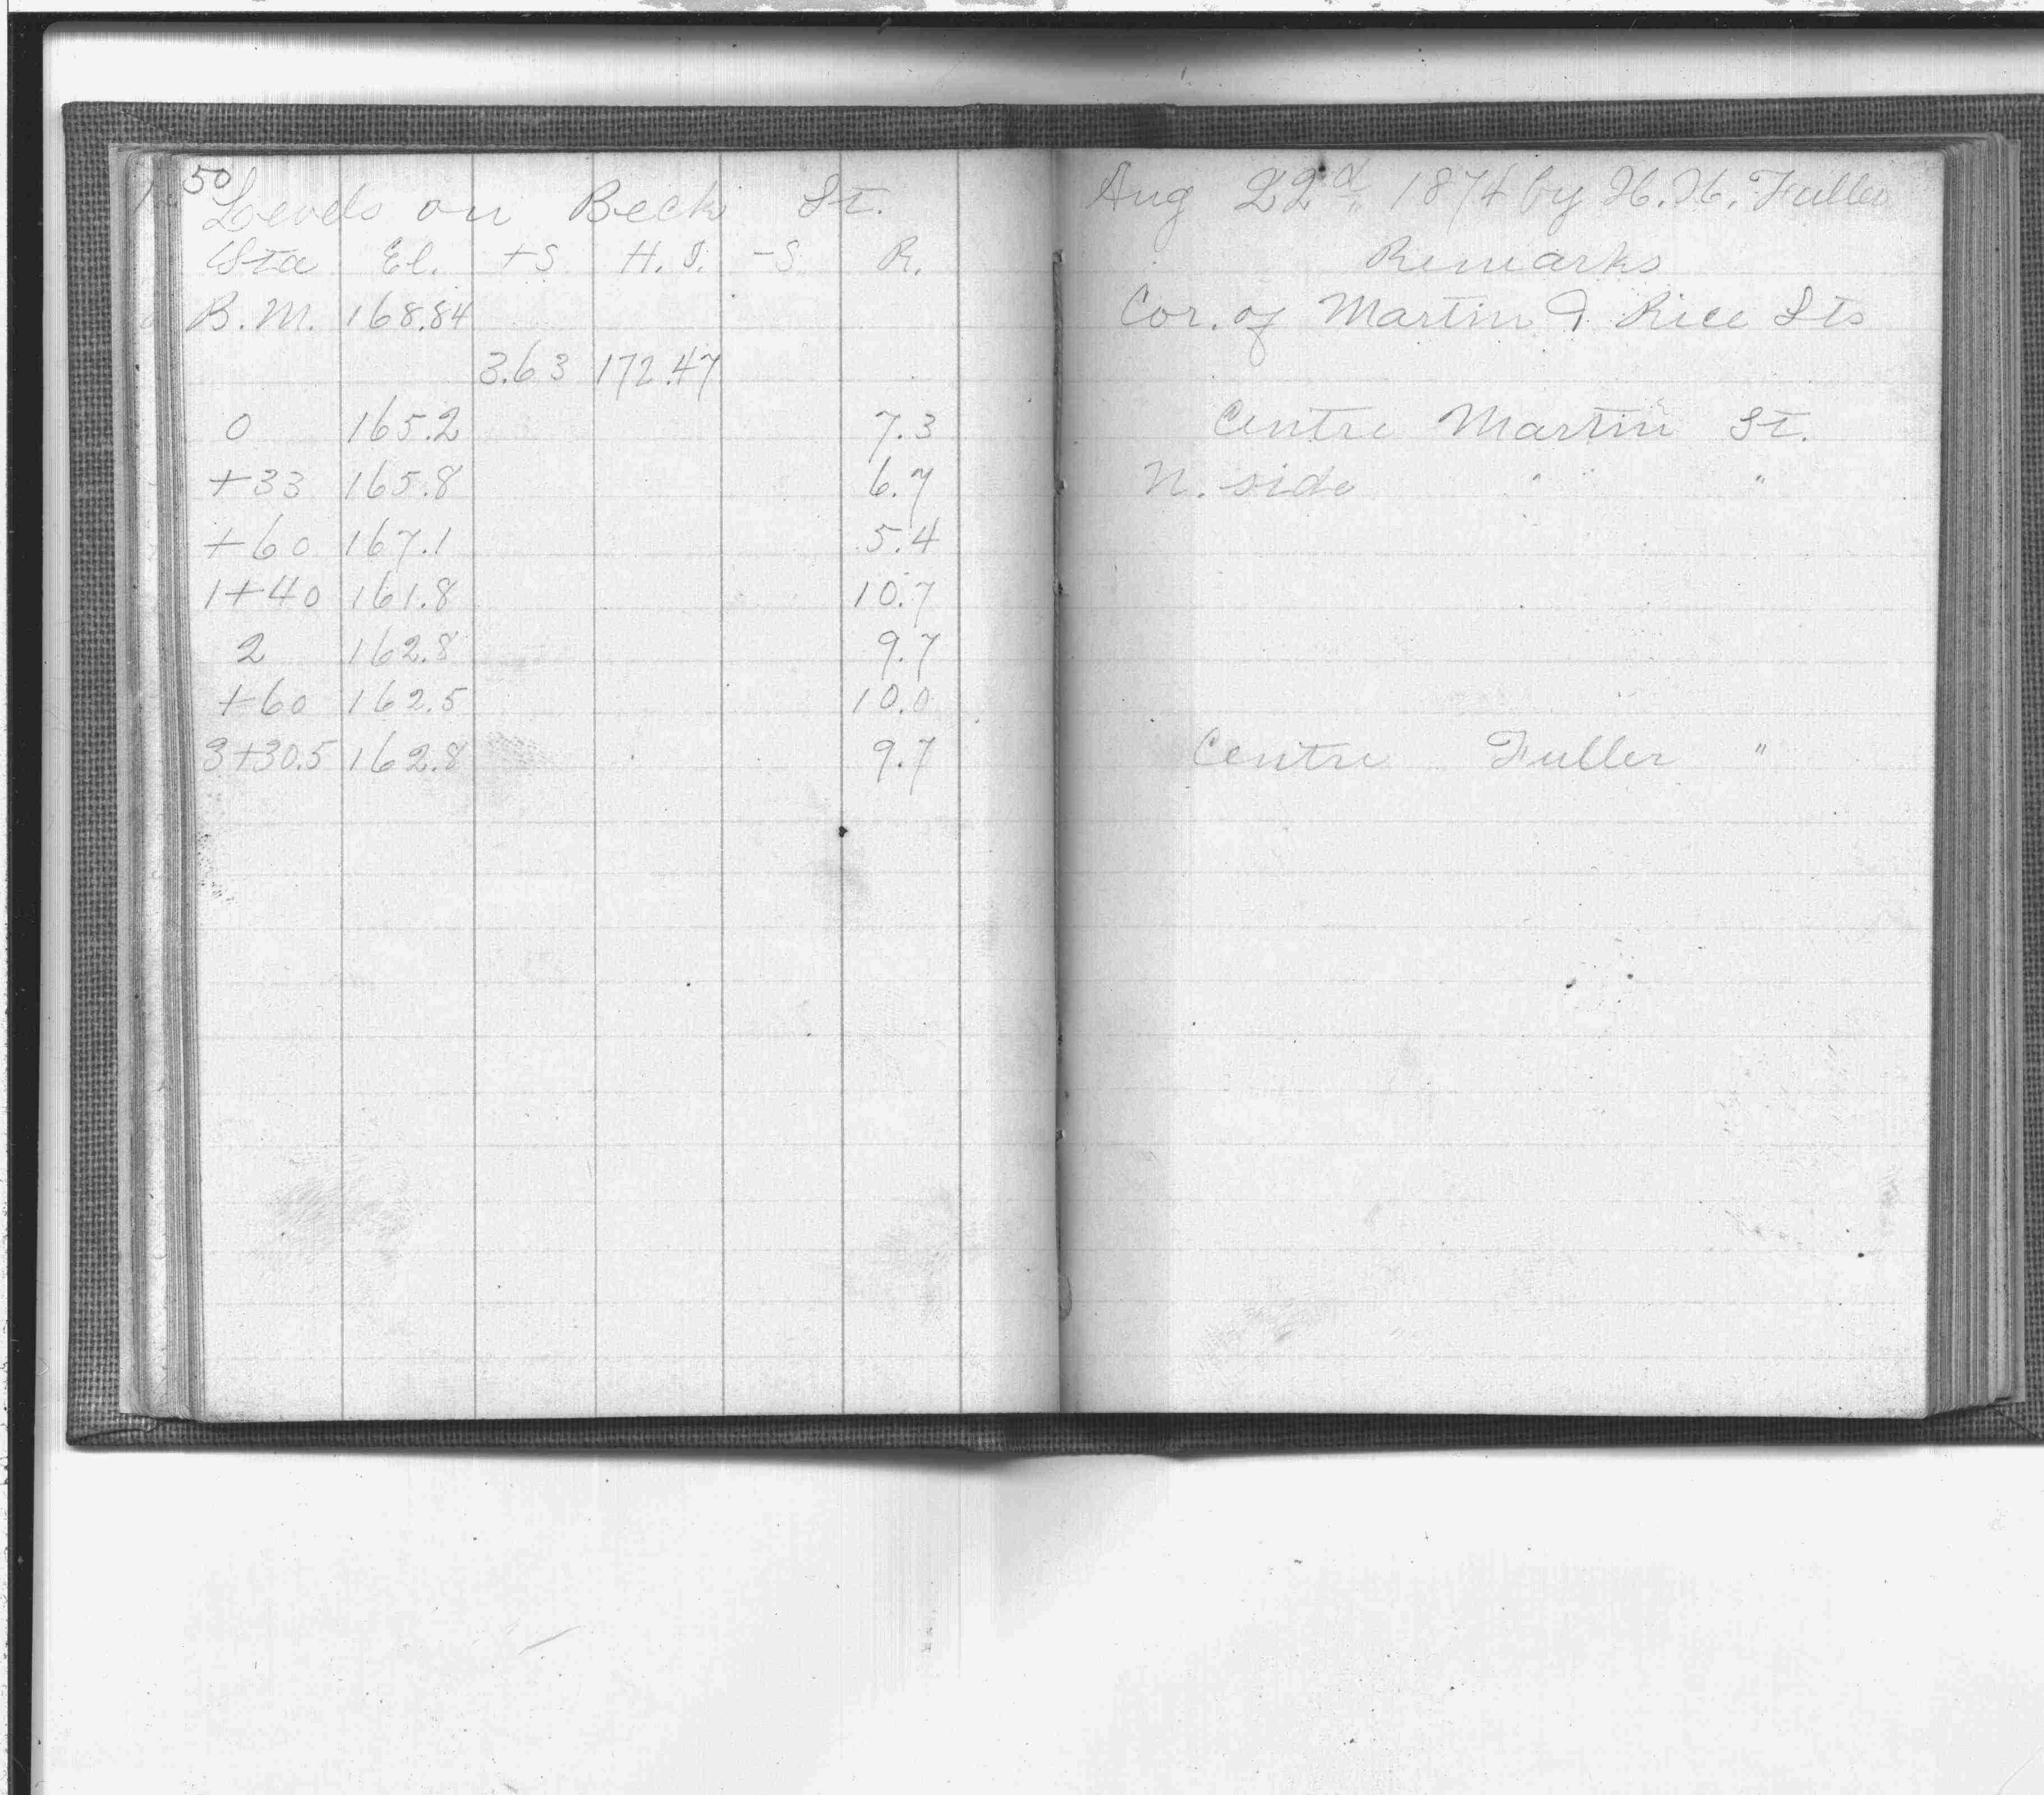 50
Levels on Beck St. Aug 22d 1874 by H. H. Fuller
Sta El. +S H. I. -S R. Remarks
B.M. 168.84 Cor. of Martin & Rice Sts
3.63 172.47
0 165.2 7.3 Centre Martin St.
+33 165.8 6.7 N. side " "
+60 167.1 5.4
1+40 161.8 10.7
2 162.8 9.7
+60 162.5 10.0
3+30.5 162.8 9.7 Centre Fuller "